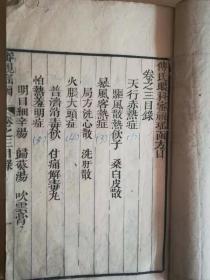 傅氏眼科審視瑤函方目
卷之三目錄
天行赤熱症
驅風散熱飲子 桑白皮散
暴風客熱症
局方洗心散 洗肝散
火脹大頭症
普濟消毒飲 住痛解毒丸
怕熱羞明症
明目細辛湯 歸葵湯 吹雲膏
審視瑤函 卷之三目錄